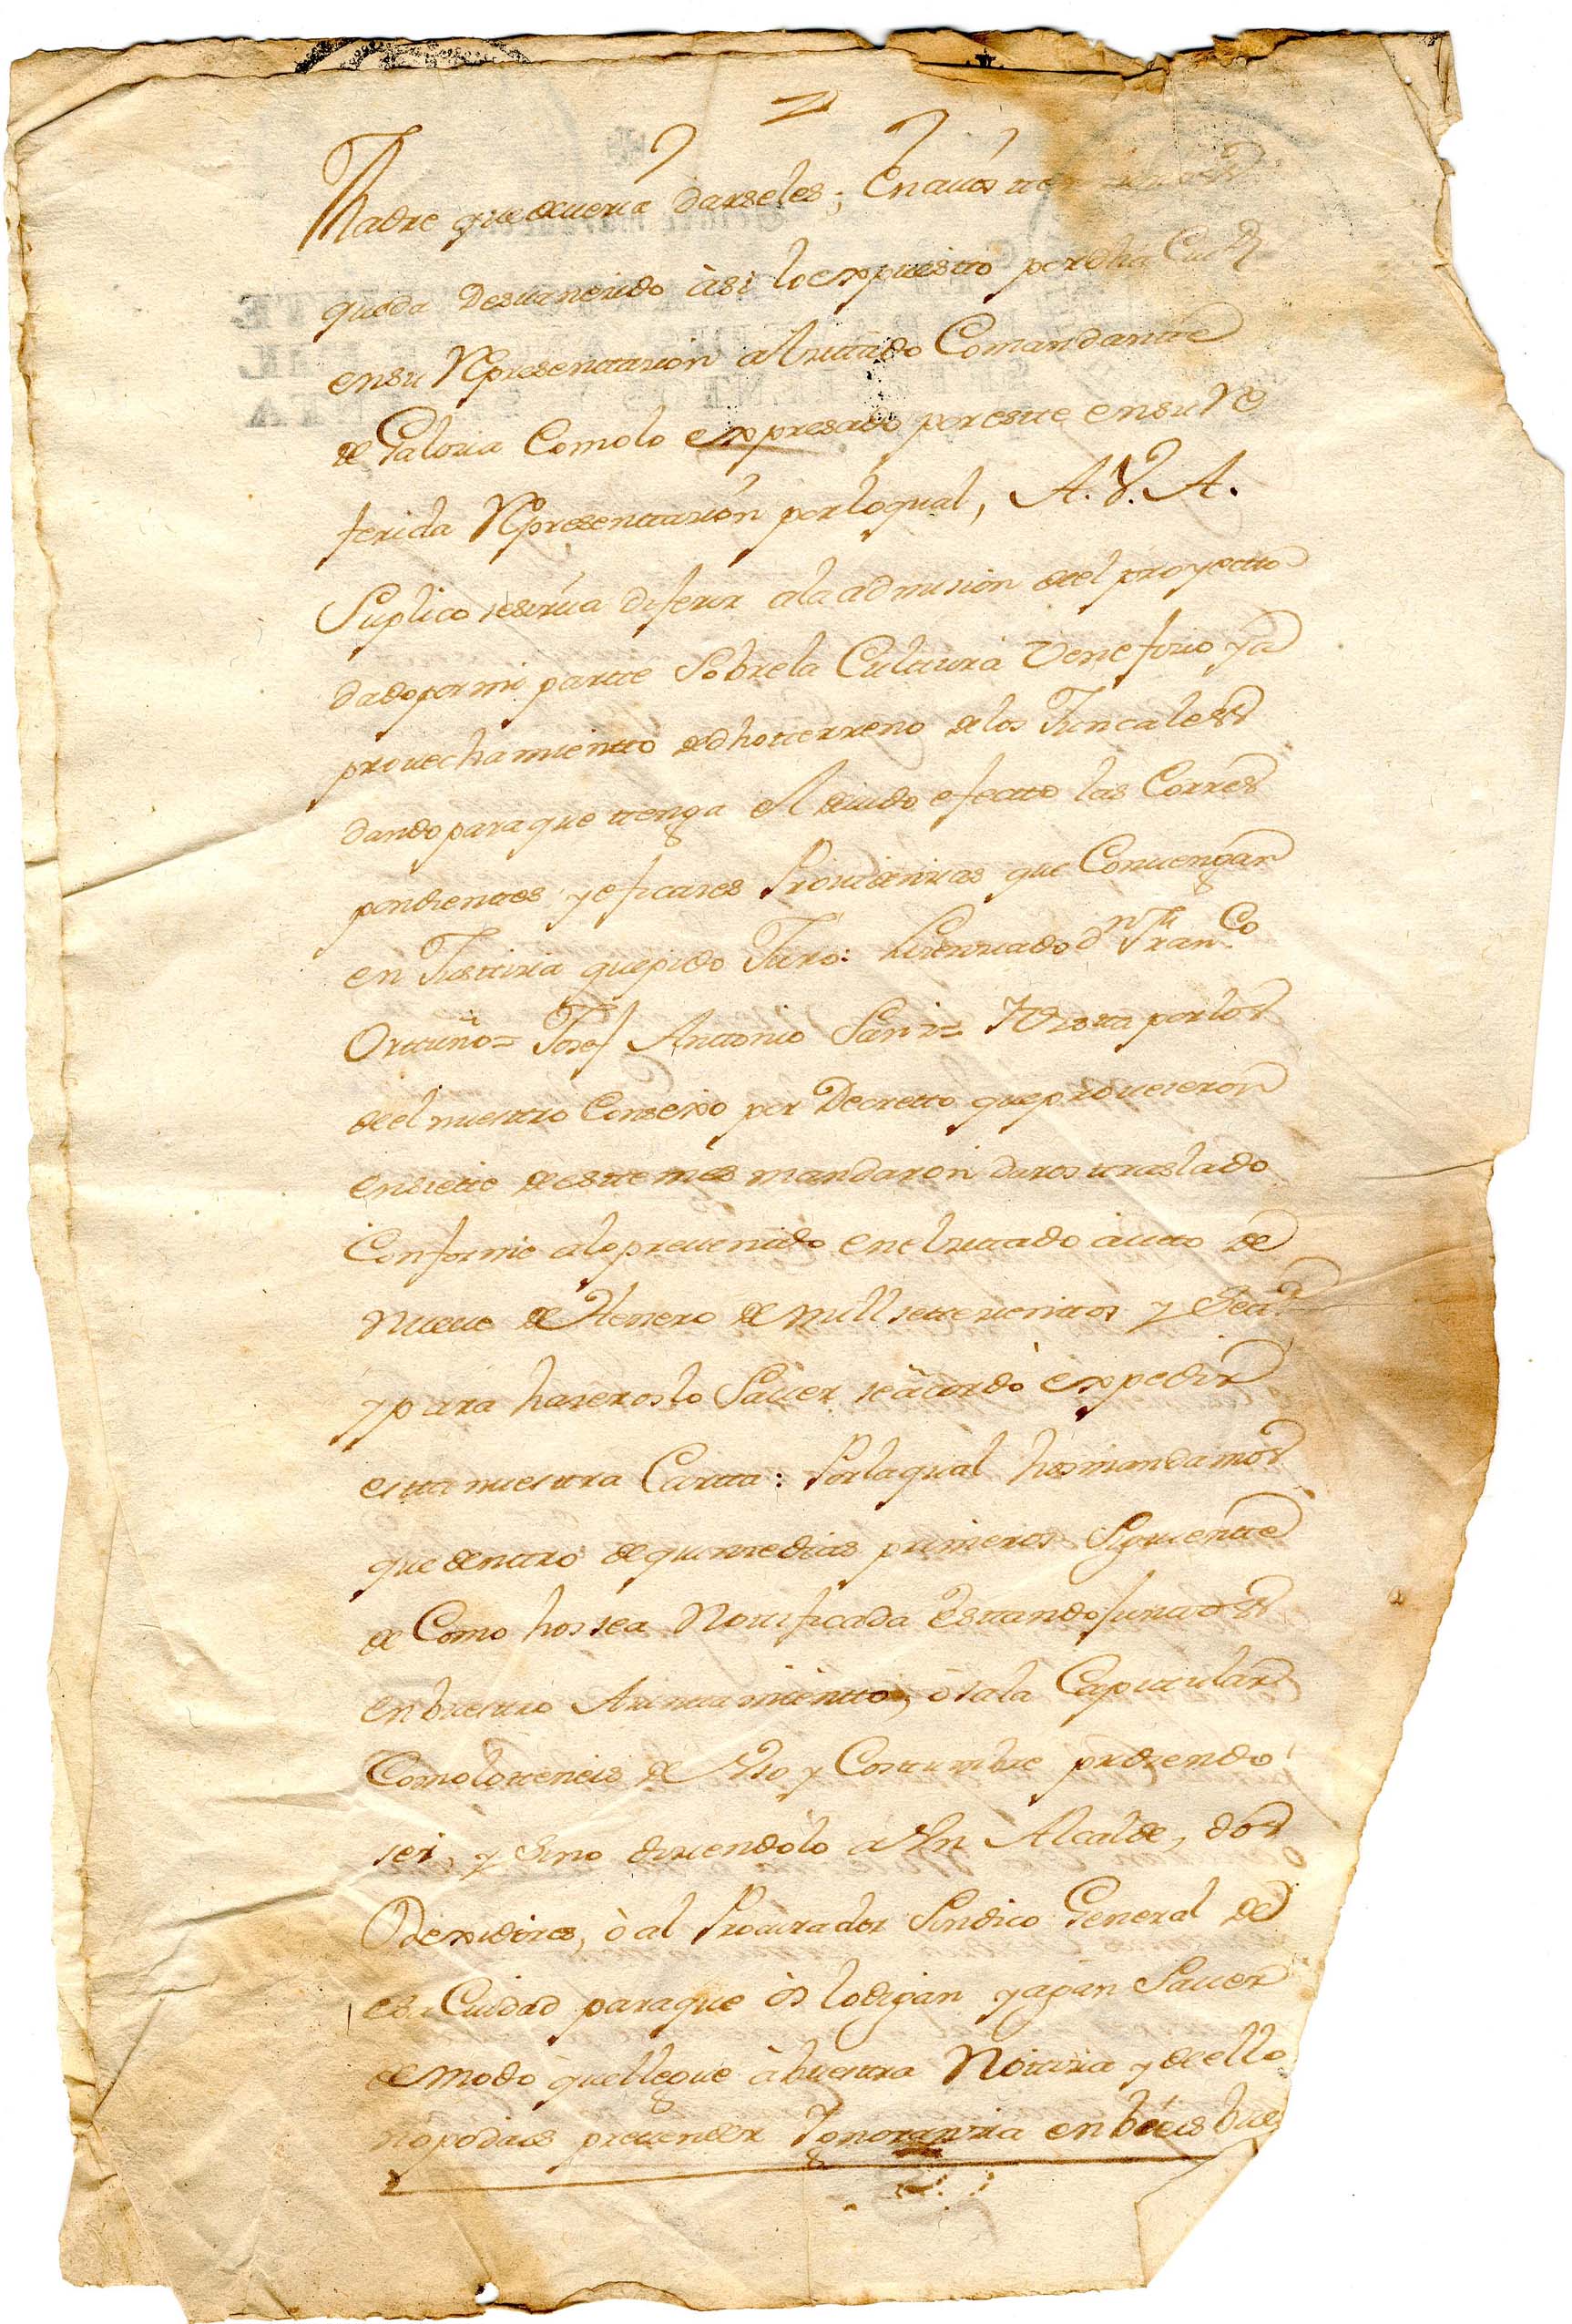 Madre que deveria darseles; En autos
queda Desvanezido àsi lo expuestto por dha Ciud
en su Representtazion al zittado Comandantte
de Galizia Como lo expresado por estte en su Re
ferida Representtazion por lo qual, A. V. A.
Suplico se sirva diferir a la admision de el proyectto
dado por mi partte Sobre la Culttura Venefizio y a
provechamientto de dho tterreno de los Juncales
dando para que ttenga el devido efectto las Corres
pondienttes y eficazes Providenzias que Convengan
en Justtizia que pido Juro: Lizenziado Dn Franco
Orttuño= Josef Anttonio Sanz= Y Vistta por los
de el nuestro Consexo por Decretto que proveieron
en siette de estte mes mandaron daros ttraslado
Conforme a lo prevenido en el zittado àutto de
nueve de Henero de mill settezienttos y Sett.ª
y para hazeros lo Saver se àcordò expedir
estta nuesttra Cartta: Por la qual hos mandamos
que denttro de quinze dias primeros Siguientte
de Como hos sea Nottificada Esttando Junttos
en buesttro Aiunttamientto, ò sala Capittular
Como lo tteneis de Vso y Costtumbre pudiendo
ser, y Sino diziendolo a Vn Alcalde, dos
Rexidores, ò al Procurador Sindico General de
esa Ciudad para que òs lo digan y agan Saver
de modo que llegue à buesttra Nottizia y de ello
no podais prettender Ygnoranzia enbieis bues